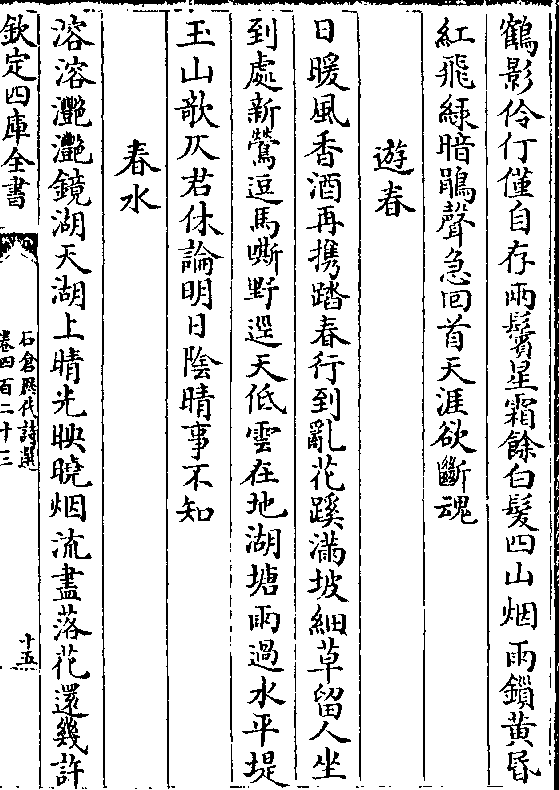 鶴影伶仃僅自存兩鬢星霜餘白髮四山烟雨鎖黃昏
紅飛緑暗鵑聲急回首天涯欲斷魂
遊春
日暖風香酒再攜踏春行到亂花蹊滿坡細草留人坐
到處新鶯逗馬嘶野逕天低雲在地湖塘雨過水平堤
玉山欹仄君休論明日陰晴事不知
春水
溶溶灔灔鏡湖天湖上晴光映曉烟流盡落花還幾許
欽定四庫全書
石倉歷代詩選
卷四百二十三
十五